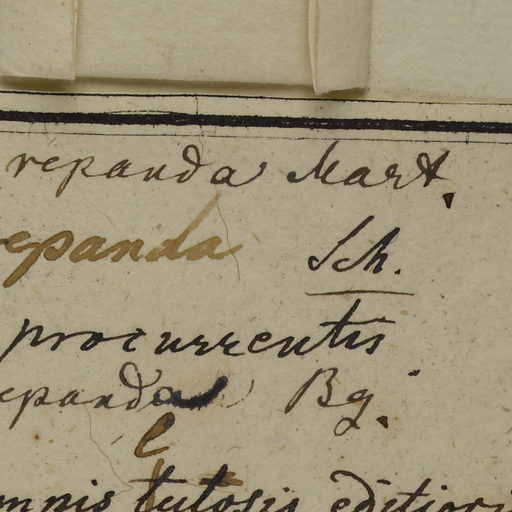 repanda Mart.
epanda Sch.
procurrentis
epanda Bg.
l
mnis tutosis editiori